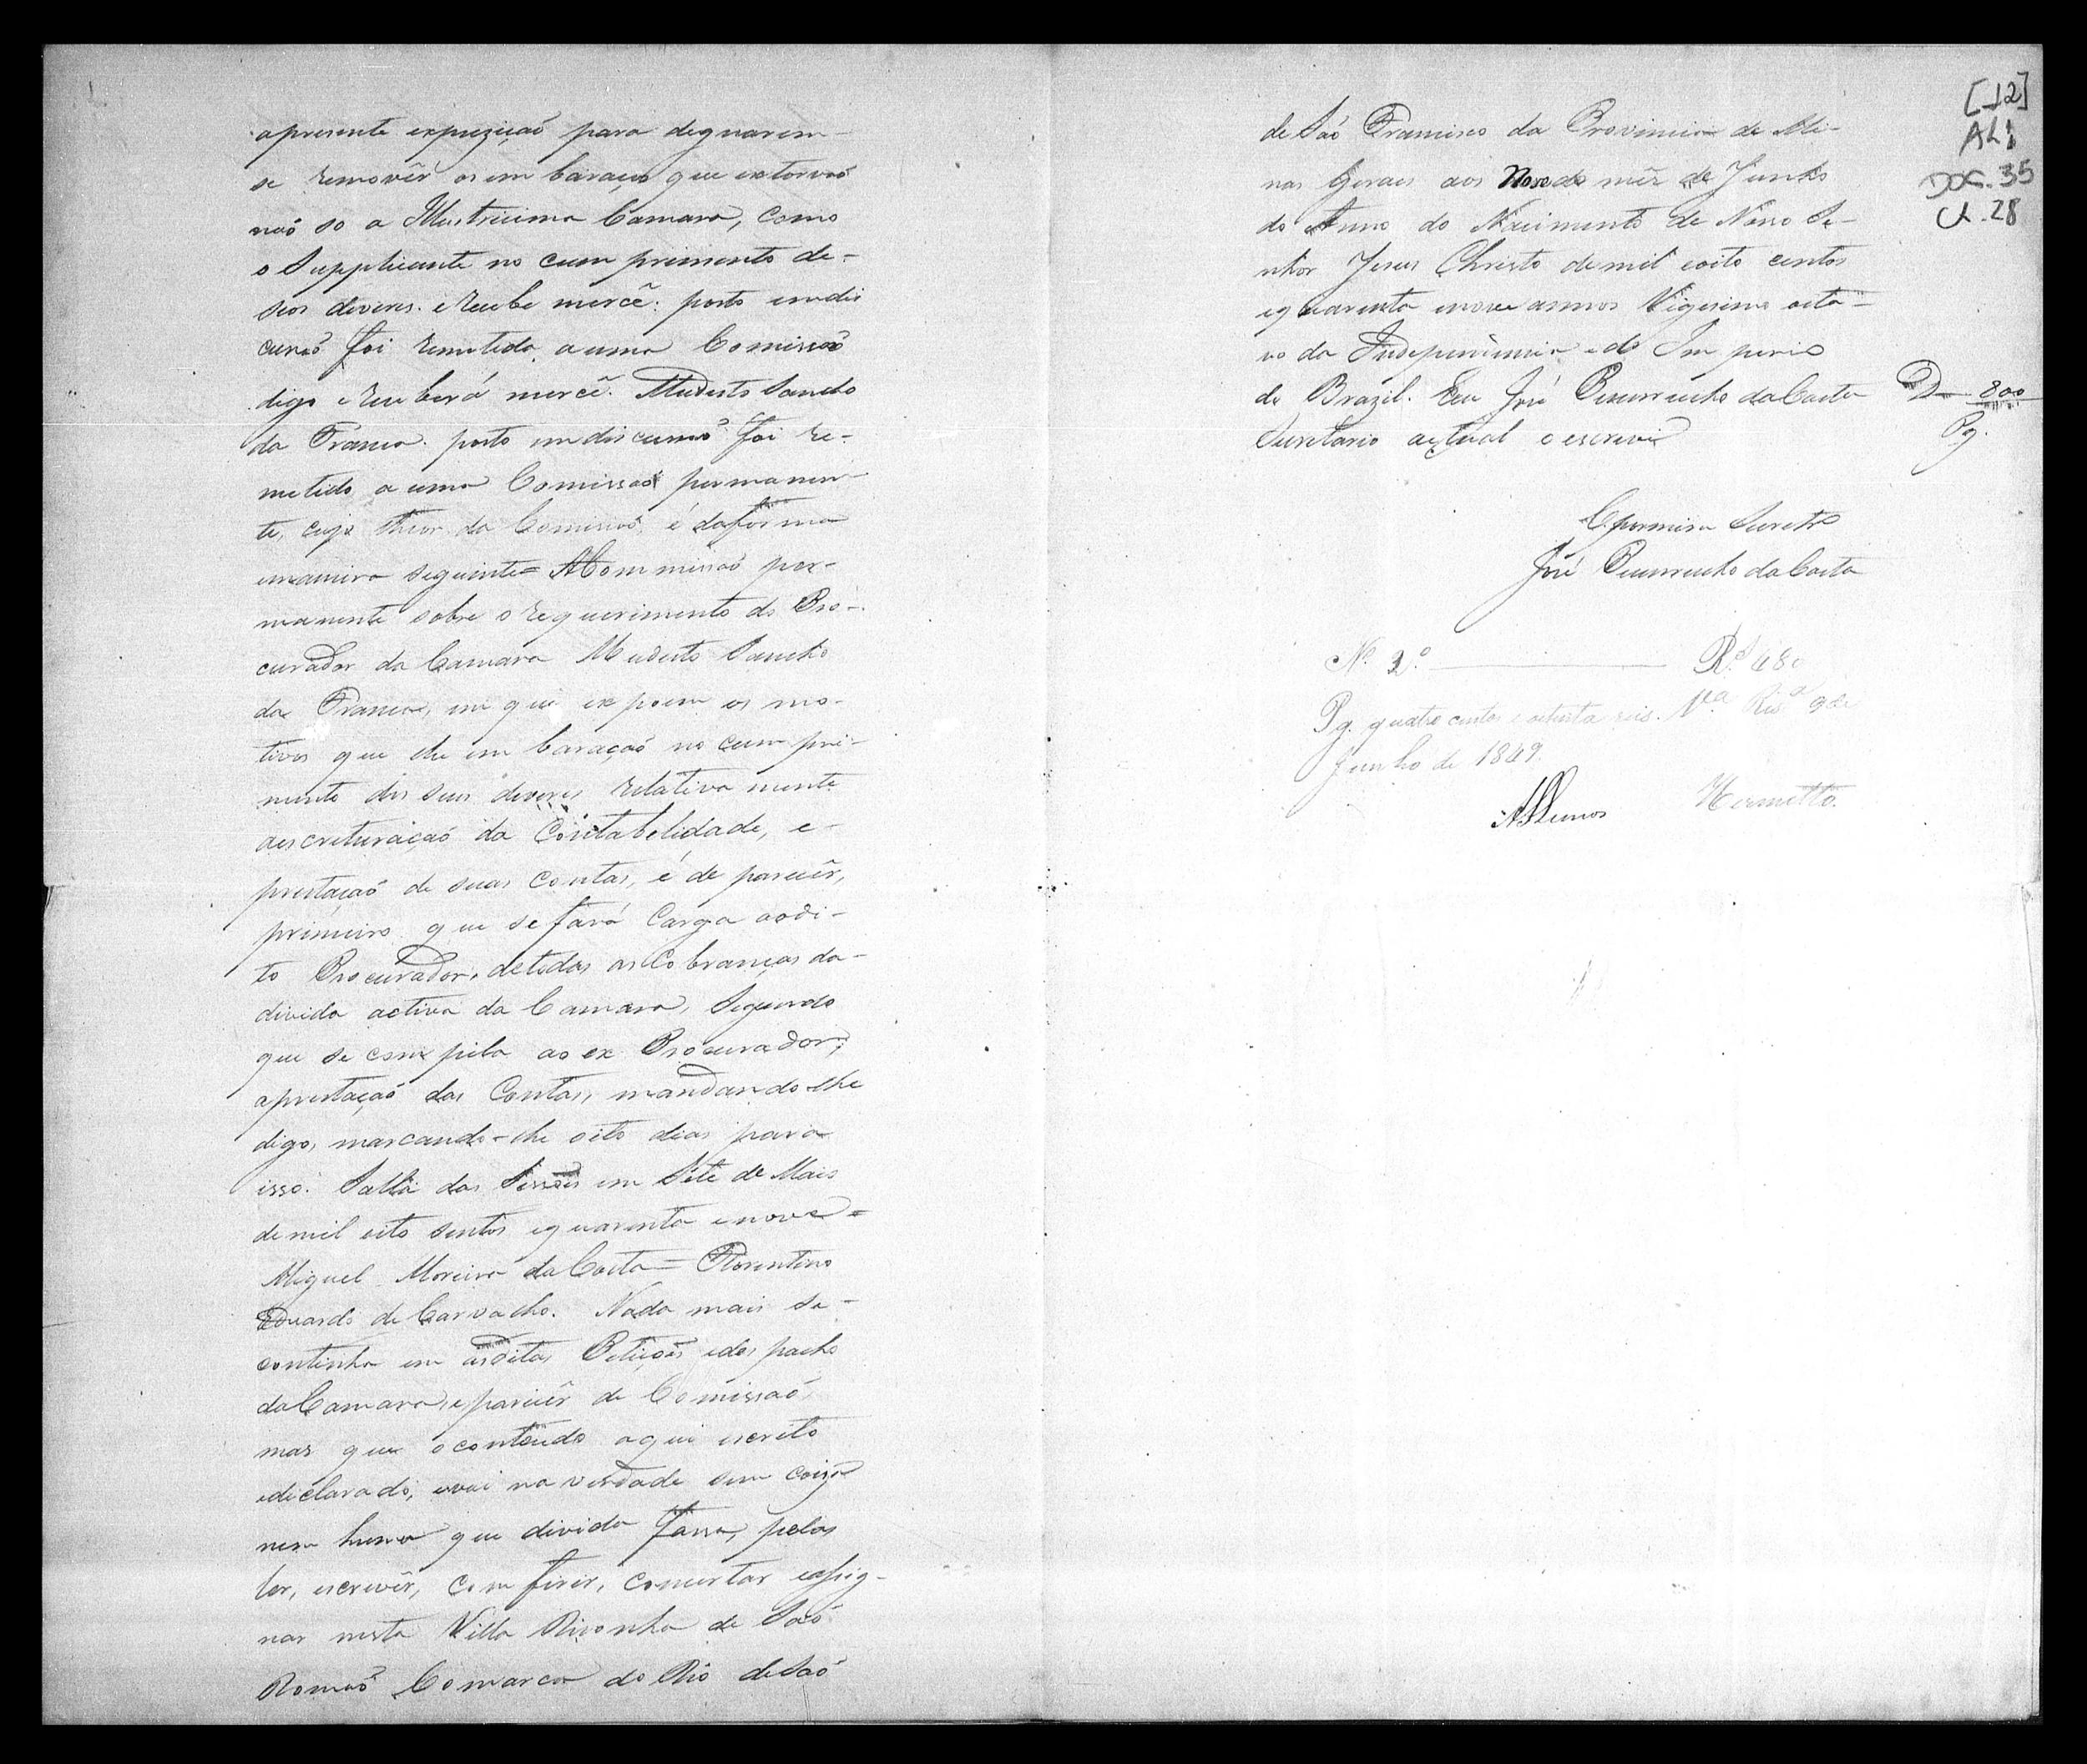 apresente expuziçaõ para degnarem-
se removêr os em baraços que extorvaõ
naõ so a Illustricima Camara, como
o Suppplicante no cum primento de-
seos deveres. e recebe mercê: posto em dis
cuçaõ foi remetido a uma Comissaõ
digo e receberá mercê. Mudesto Sancho
da Franca. posto em discussaõ foi re-
metido a uma Comissaõ permanen-
te, cujo theor da Comissaõ é da forma
emaneira seguinte= A Commissaõ per-
manente sobre o requerimento do Pro-
curador da Camara Mudesto Sancho
da Franca, em que ex poem os mo-
tivos que lhe em baraçaõ no cum pri-
mento dos seus deveres relativa mente
aescreturaçaõ da Contabelidade, e-
prestaçaõ de suas Contas, é de parecêr,
primeiro que se fará Carga aodi-
to Procurador, detodas as Cobranças da-
divida activa da Camara, Segundo
que se com pila ao ex Procurador,
aprestaçaõ das Contas, mandando-lhe
digo, marcando-lhe oito dias para
isso. Salla das Sessões em Sete de Maio
demil oito sentos equarenta enove=
Miguel Moreira da Costa= Florentino
Eduardo de Carvalho. Nada mais se-
continha em asditas Petições edes pacho
da Camara, eparecêr de Comissaõ,
mas que o contéudo aqui escrito
edeclarado, evai na verdade sem coiza
nem huma que divida fassa, pelos
ler, escrevêr, Com ferir, consertar eassig-
nar nesta Villa Risonha de Saõ
Romaõ Comarca do Rio de Saõ
[12]
AL1
DOC. 35
Cx. 28
de Saõ Francisco da Provincia de Mi-
nas Gerais aos Nove do mêz de Junho
do Anno do Nacimento de Nosso Se-
nhor Jesus Christo demil eoito centos
equarenta enove annos Vigesimo oita-
vo da Independencia e do Im perio
do Brazil. Eu José da Costa
Secretario actual o escrevi
D 800
Pg.
Secretr.o
José da Costa
N.º 2.º Rs 480
Pg. quatro centos e oitenta reis. V.a Ris.a 9 de
Junho de 1849.
Lemos Hermetto.